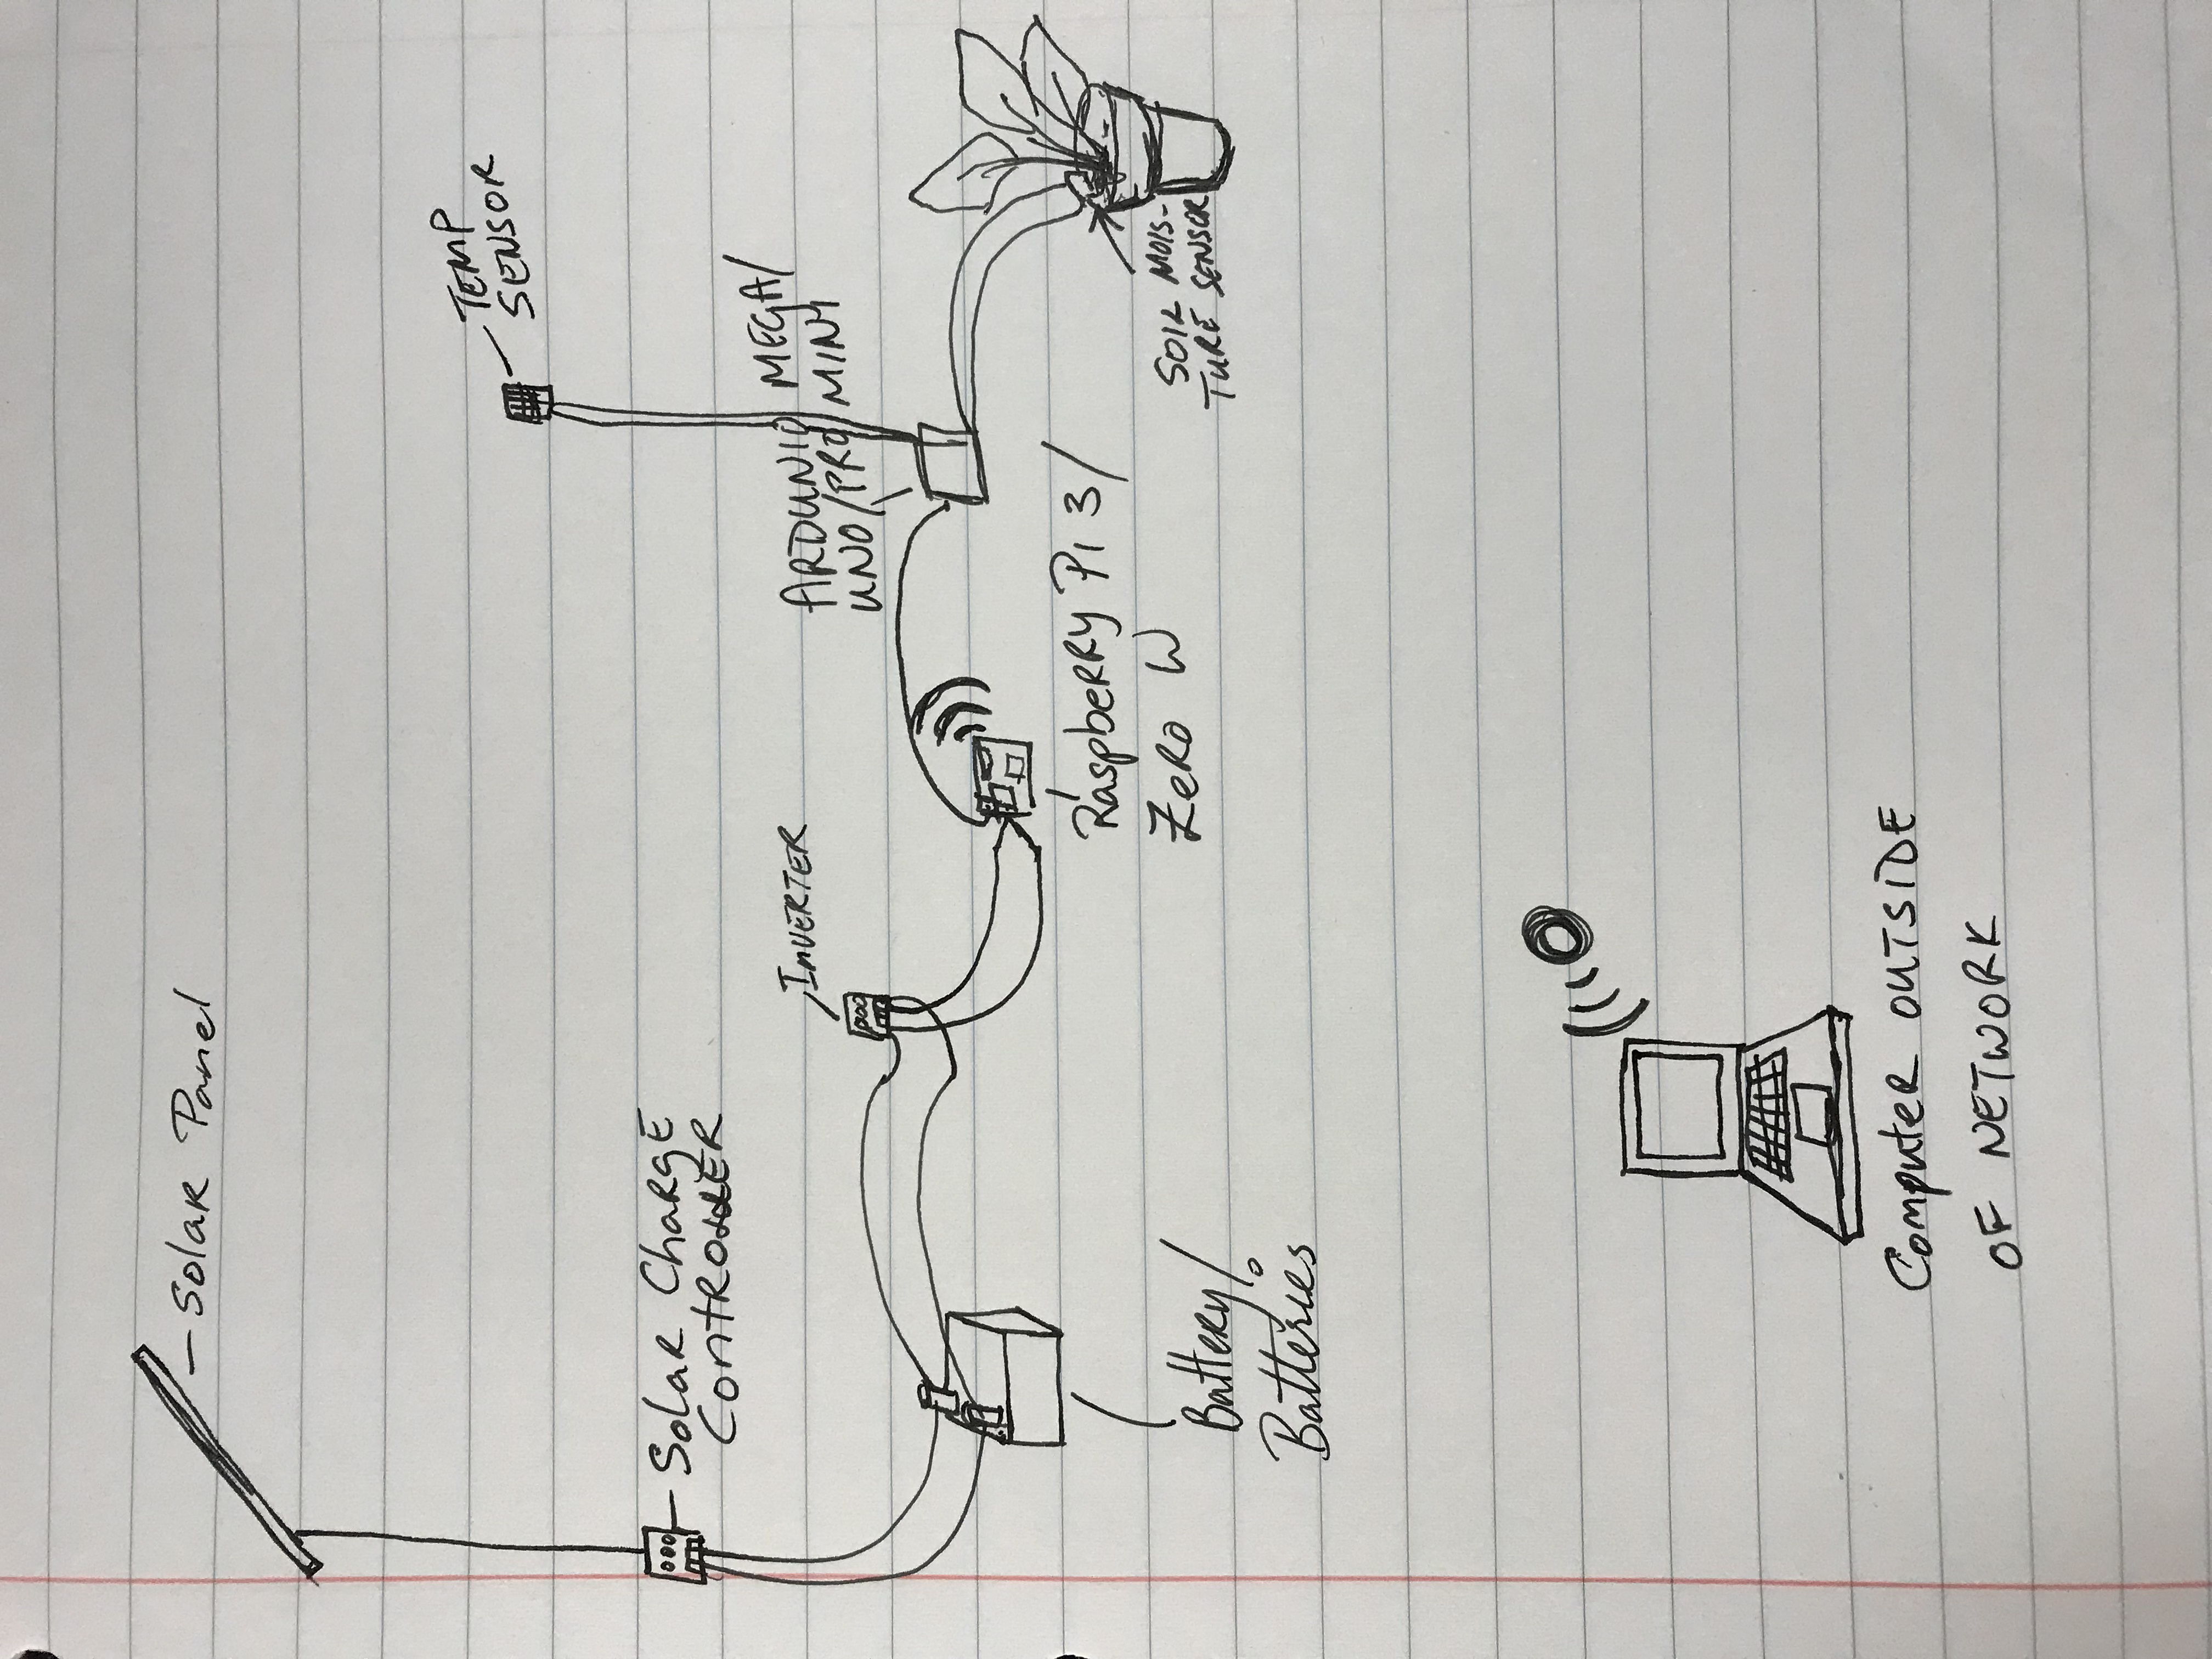 Solar Panel
TEMP
SENSOR
Solar Charge
Controller
INVERTER
ARDUNIO MEGA/
UNO/PRO MINI
Raspberry Pi 3/
Zero W
SOIL MOIS-
TURE SENSOR
Battery/
Batteries
Computer OUTSIDE
OF NETWORK